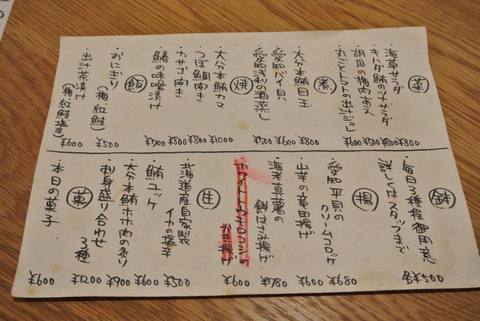 菜
海草サラダ ¥800
キハダ鮪のツナサラダ ¥800
胡瓜の梅肉おあえ
丸ごとトマトの出汁ジュレ
煮
大分本鮪目玉
愛知バイ貝
愛知浅利の酒蒸し
焼
大分本鮪カマ ¥1000
つぼ鯛開き ¥800
カサゴ開き
鯖の味噌漬け
飯
おにぎり ¥500
(梅・紅鮭)
出汁茶漬け ¥600
(梅・紅鮭・塩辛)
鉢
毎日3種程御用意
詳しくはスタッフまで
各¥500
揚
愛知平貝の
クリームコロッケ ¥680
山芋の竜田揚げ
海老真薯の
餅はさみ揚げ
ホワイトトウモロコシの
かき揚げ ¥600
生
北海道産自家製
イカの塩辛 ¥500
鮪ユッケ ¥600
大分本鮪ホホ肉の炙り ¥900
刺身盛り合わせ 3種 ¥1200
菓
本日の菓子 ¥600